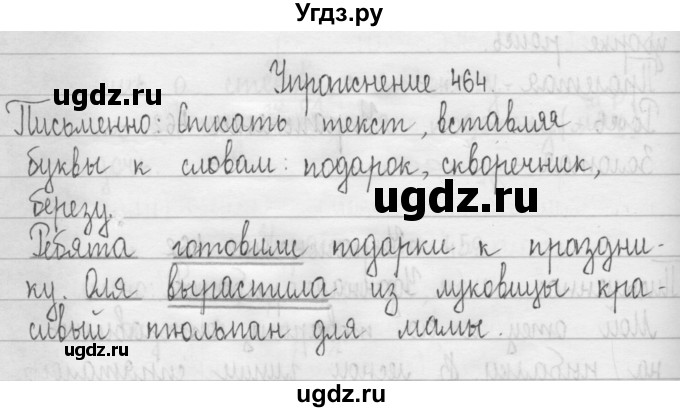 Угдз.ру
Упражнение 464.
ugdz.ru
ugdz.ru
Письменно: Списать текст, вставляя
буквы к словам: подарок, скворечник,
ugdz.ru
березу.
Ребята готовили подарки к праздни-
ку. Оля вырастила из луковицы кра-
сивый тюльпан для мамы.
ugdz.ru
ugdz.ru
ugdz.ru